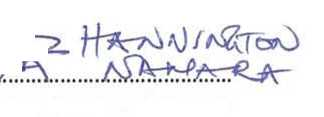 2 HANNINGTON
A NAMARA